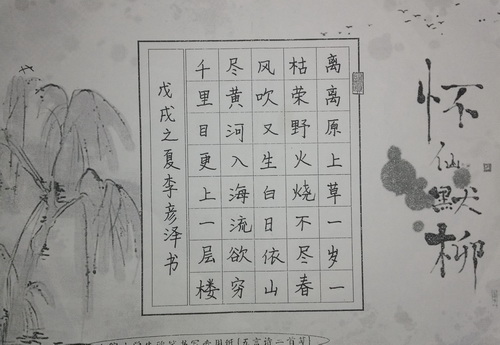 离离原上草一岁一
枯荣野火烧不尽春
风吹又生白日依山
尽黄河入海流欲穷
千里目更上一层楼
戊戌之夏李彦泽书